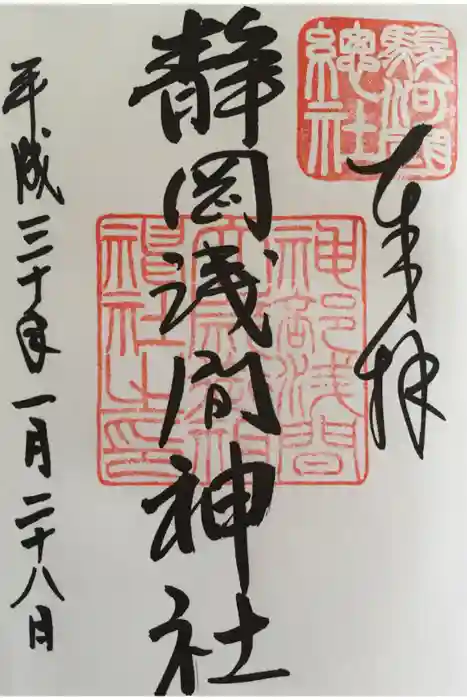 駿河國
總社
奉拝
静岡浅間神社
神部淺間
大歳御祖
神社之印
平成三十年一月二十八日